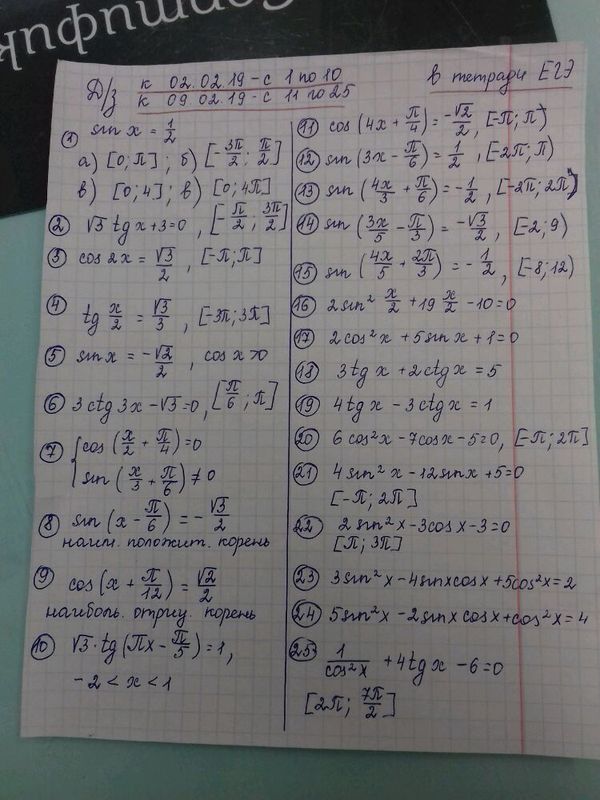 Д/з к 02.02.19 - с 1 по 10 в тетради ЕГЭ
к 09.02.19 - с 11 по 25
① sin x = 1/2
а) [0; П] ; б) [-3П/2 ; П/2]
в) [0; 4] ; в) [0; 4П]
② √3 tg x + 3 = 0 , [-П/2 ; 3П/2]
③ cos 2x = √3/2 , [-П; П]
④ tg x/2 = √3/3 , [-3П; 3П]
⑤ sin x = -√2/2 , cos x > 0
⑥ 3 ctg 3x - √3 = 0 , [П/6 ; П]
⑦ { cos (x/2 + П/4) = 0
sin (x/3 + П/6) ≠ 0
⑧ sin (x - П/6) = - √3/2
наим. положит. корень
⑨ cos (x + П/12) = √2/2
наиболь. отриц. корень
⑩ √3 · tg (Пx - П/5) = 1 ,
-2 < x < 1
⑪ cos (4x + П/4) = -√2/2 , [-П; П)
⑫ sin (3x - П/6) = 1/2 , [-2П; П)
⑬ sin (4x/3 + П/6) = -1/2 , [-2П; 2П)
⑭ sin (3x/5 - П/3) = -√3/2 , [-2; 9)
⑮ sin (4x/5 + 2П/3) = - 1/2 , [-8; 12)
⑯ 2 sin² x/2 + 19 x/2 - 10 = 0
⑰ 2 cos² x + 5 sin x + 1 = 0
⑱ 3 tg x + 2 ctg x = 5
⑲ 4 tg x - 3 ctg x = 1
⑳ 6 cos² x - 7 cos x - 5 = 0 , [-П; 2П]
㉑ 4 sin² x - 12 sin x + 5 = 0
[-П; 2П]
㉒ 2 sin² x - 3 cos x - 3 = 0
[П; 3П]
㉓ 3 sin² x - 4 sin x cos x + 5 cos² x = 2
㉔ 5 sin² x - 2 sin x cos x + cos² x = 4
㉕ 1/cos² x + 4 tg x - 6 = 0
[2П; 7П/2]